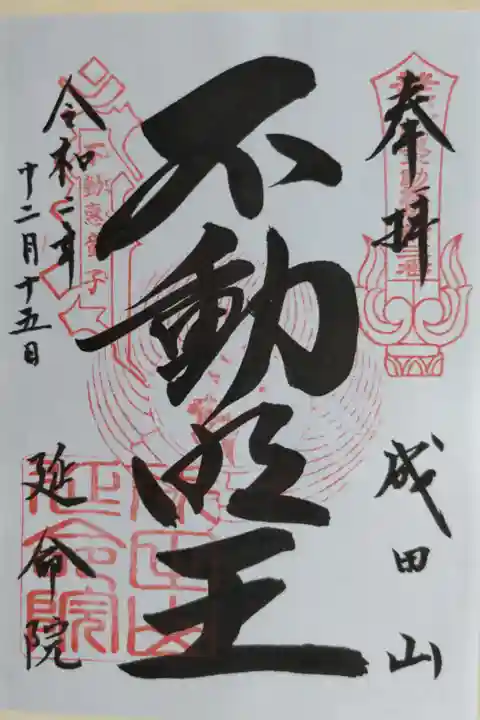 奉拝
成田山
不動明王
令和二年
十二月十五日
延命院